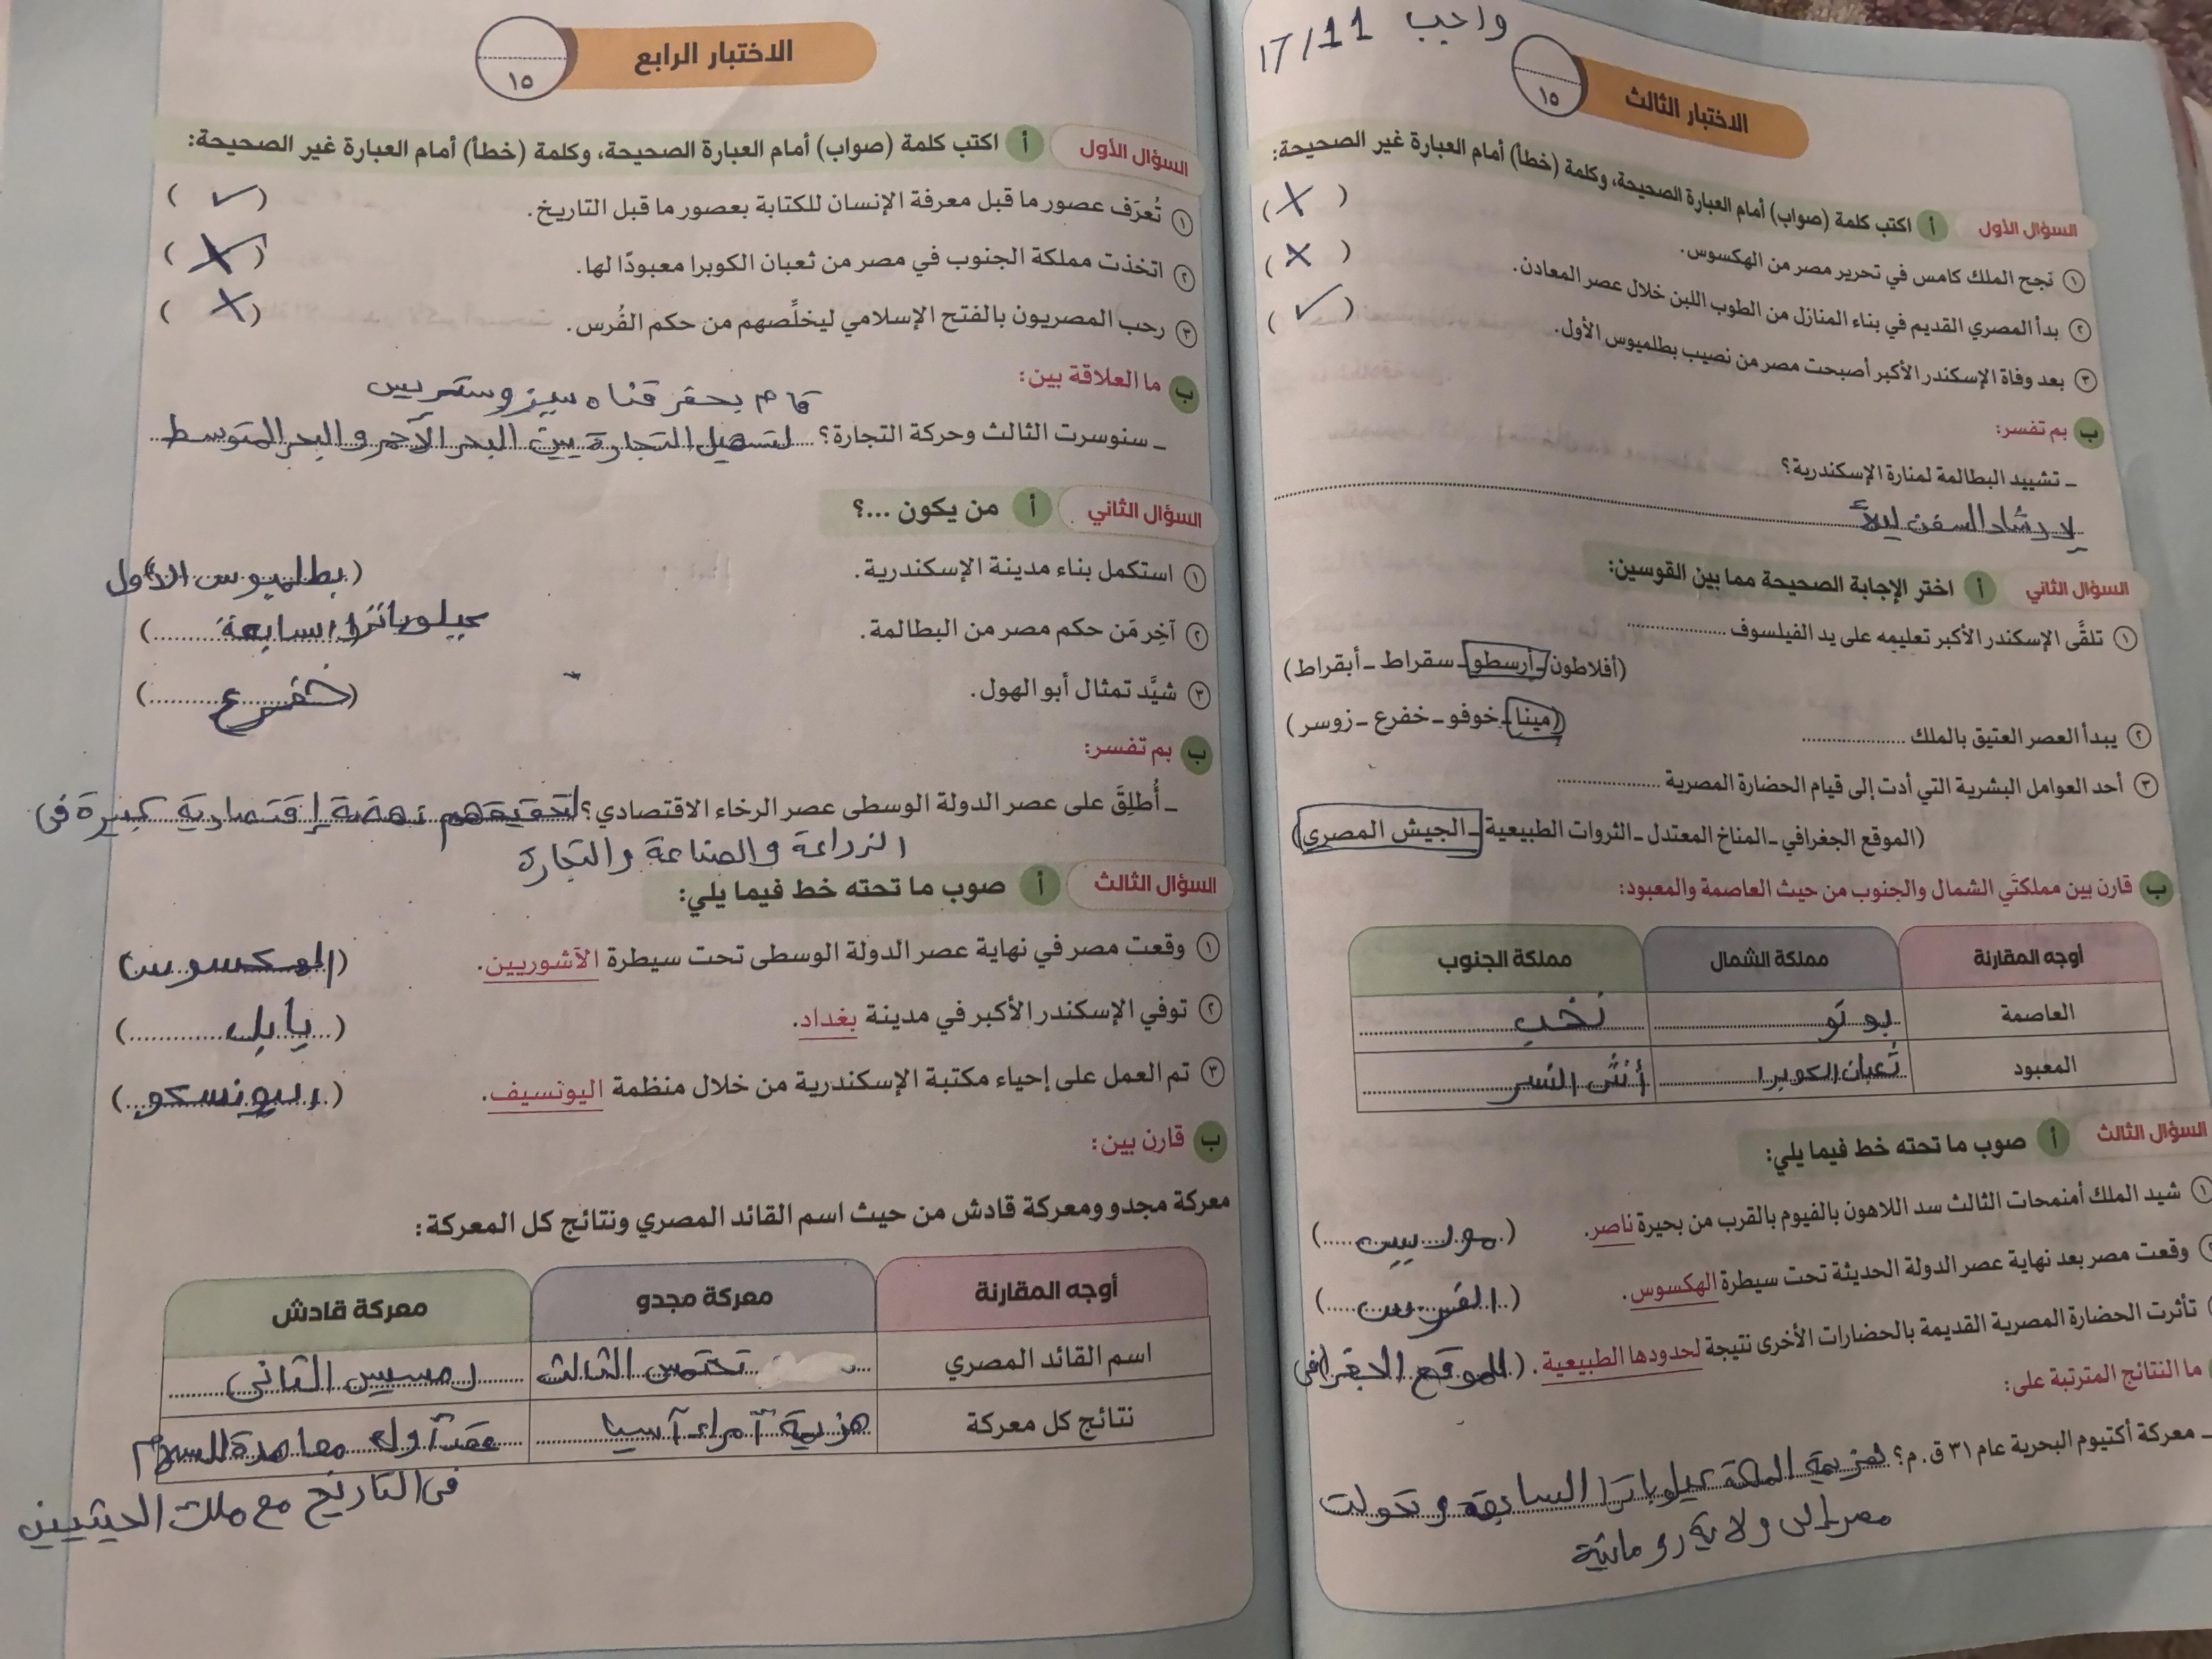 واجب 11/17
الاختبار الثالث
١٥
السؤال الأول أ اكتب كلمة (صواب) أمام العبارة الصحيحة، وكلمة (خطأ) أمام العبارة غير الصحيحة:
١ نجح الملك كامس في تحرير مصر من الهكسوس. (X)
٢ بدأ المصري القديم في بناء المنازل من الطوب اللبن خلال عصر المعادن. (X)
٣ بعد وفاة الإسكندر الأكبر أصبحت مصر من نصيب بطلميوس الأول. (✓)
ب بم تفسر:
ـ تشييد البطالمة لمنارة الإسكندرية؟
لإرشاد السفن ليلاً
السؤال الثاني أ اختر الإجابة الصحيحة مما بين القوسين:
١ تلقَّى الإسكندر الأكبر تعليمه على يد الفيلسوف ................
(أفلاطون ـ أرسطو ـ سقراط ـ أبقراط)
٢ يبدأ العصر العتيق بالملك ................
(مينا ـ خوفو ـ خفرع ـ زوسر)
٣ أحد العوامل البشرية التي أدت إلى قيام الحضارة المصرية ................
(الموقع الجغرافي ـ المناخ المعتدل ـ الثروات الطبيعية ـ الجيش المصري)
ب قارن بين مملكتَي الشمال والجنوب من حيث العاصمة والمعبود:
أوجه المقارنة مملكة الشمال مملكة الجنوب
العاصمة بوتو نخب
المعبود ثعبان الكوبرا أنثى النسر
السؤال الثالث أ صوب ما تحته خط فيما يلي:
١ شيد الملك أمنمحات الثالث سد اللاهون بالفيوم بالقرب من بحيرة ناصر. (موريس)
وقعت مصر بعد نهاية عصر الدولة الحديثة تحت سيطرة الهكسوس. (الفرس)
تأثرت الحضارة المصرية القديمة بالحضارات الأخرى نتيجة لحدودها الطبيعية. (الموقع الجغرافى
ما النتائج المترتبة على:
ـ معركة أكتيوم البحرية عام ٣١ ق.م؟ هزيمة الملكة كيلوباترا السابعة وتحولت
مصر إلى ولاية رومانية
الاختبار الرابع
١٥
السؤال الأول أ اكتب كلمة (صواب) أمام العبارة الصحيحة، وكلمة (خطأ) أمام العبارة غير الصحيحة:
١ تُعرَف عصور ما قبل معرفة الإنسان للكتابة بعصور ما قبل التاريخ. (✓)
٢ اتخذت مملكة الجنوب في مصر من ثعبان الكوبرا معبودًا لها. (X)
٣ رحب المصريون بالفتح الإسلامي ليخلِّصهم من حكم الفُرس. (X)
ب ما العلاقة بين:
قام بحفر قناه سيزوستريس
ـ سنوسرت الثالث وحركة التجارة؟ لتسهيل التجارة بين البحر الأحمر والبحر المتوسط
السؤال الثاني أ من يكون ...؟
١ استكمل بناء مدينة الإسكندرية. (بطلميوس الأول
٢ آخِر مَن حكم مصر من البطالمة. كيلوباترا السابعة)
٣ شيَّد تمثال أبو الهول. (خفرع)
ب بم تفسر:
ـ أُطلِقَ على عصر الدولة الوسطى عصر الرخاء الاقتصادي؟ لتحقيقهم نهضة إقتصادية كبيرة فى
الزراعة والصناعة والتجارة
السؤال الثالث أ صوب ما تحته خط فيما يلي:
١ وقعت مصر في نهاية عصر الدولة الوسطى تحت سيطرة الآشوريين. (الهكسوس
٢ توفي الإسكندر الأكبر في مدينة بغداد. (بابل)
٣ تم العمل على إحياء مكتبة الإسكندرية من خلال منظمة اليونسيف. (اليونسكو)
ب قارن بين:
معركة مجدو ومعركة قادش من حيث اسم القائد المصري ونتائج كل المعركة:
أوجه المقارنة معركة مجدو معركة قادش
اسم القائد المصري تحتمس الثالث رمسيس الثانى
نتائج كل معركة هزيمة أمراء آسيا عقد أول معاهدة للسلام
فى التاريخ مع ملك الحيثيين